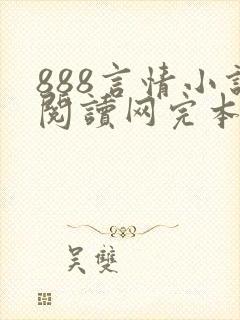 888言情小説
閱讀网完本
吴雙